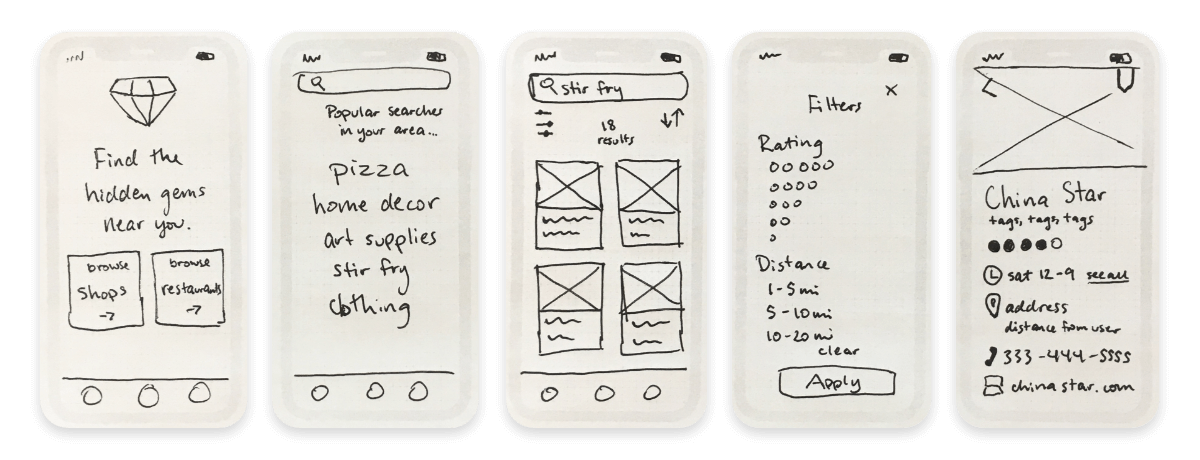 Find the
hidden gems
near you.
browse
shops
→
browse
restaurants
→
Popular searches
in your area...
pizza
home decor
art supplies
stir fry
clothing
stir fry
18
results
x
Filters
Rating
Distance
1-5 mi
5-10 mi
10-20 mi
clear
Apply
China Star
tags, tags, tags
sat 12-9 see all
address
distance from user
333-444-5555
chinastar.com